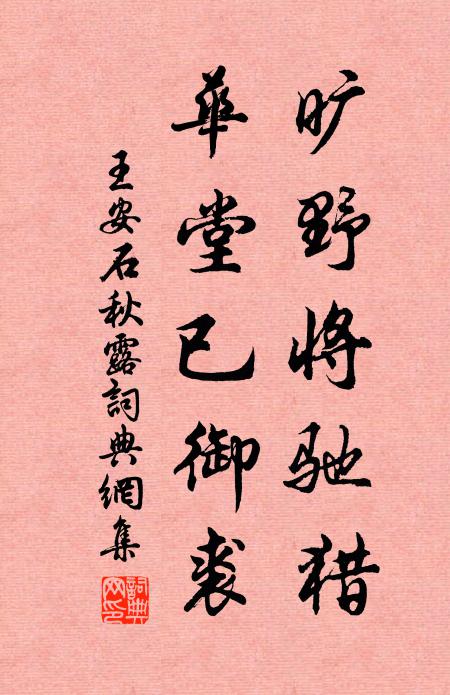 旷野将驰猎
華堂已御裘
王安石秋露詞典網集
詞典网印